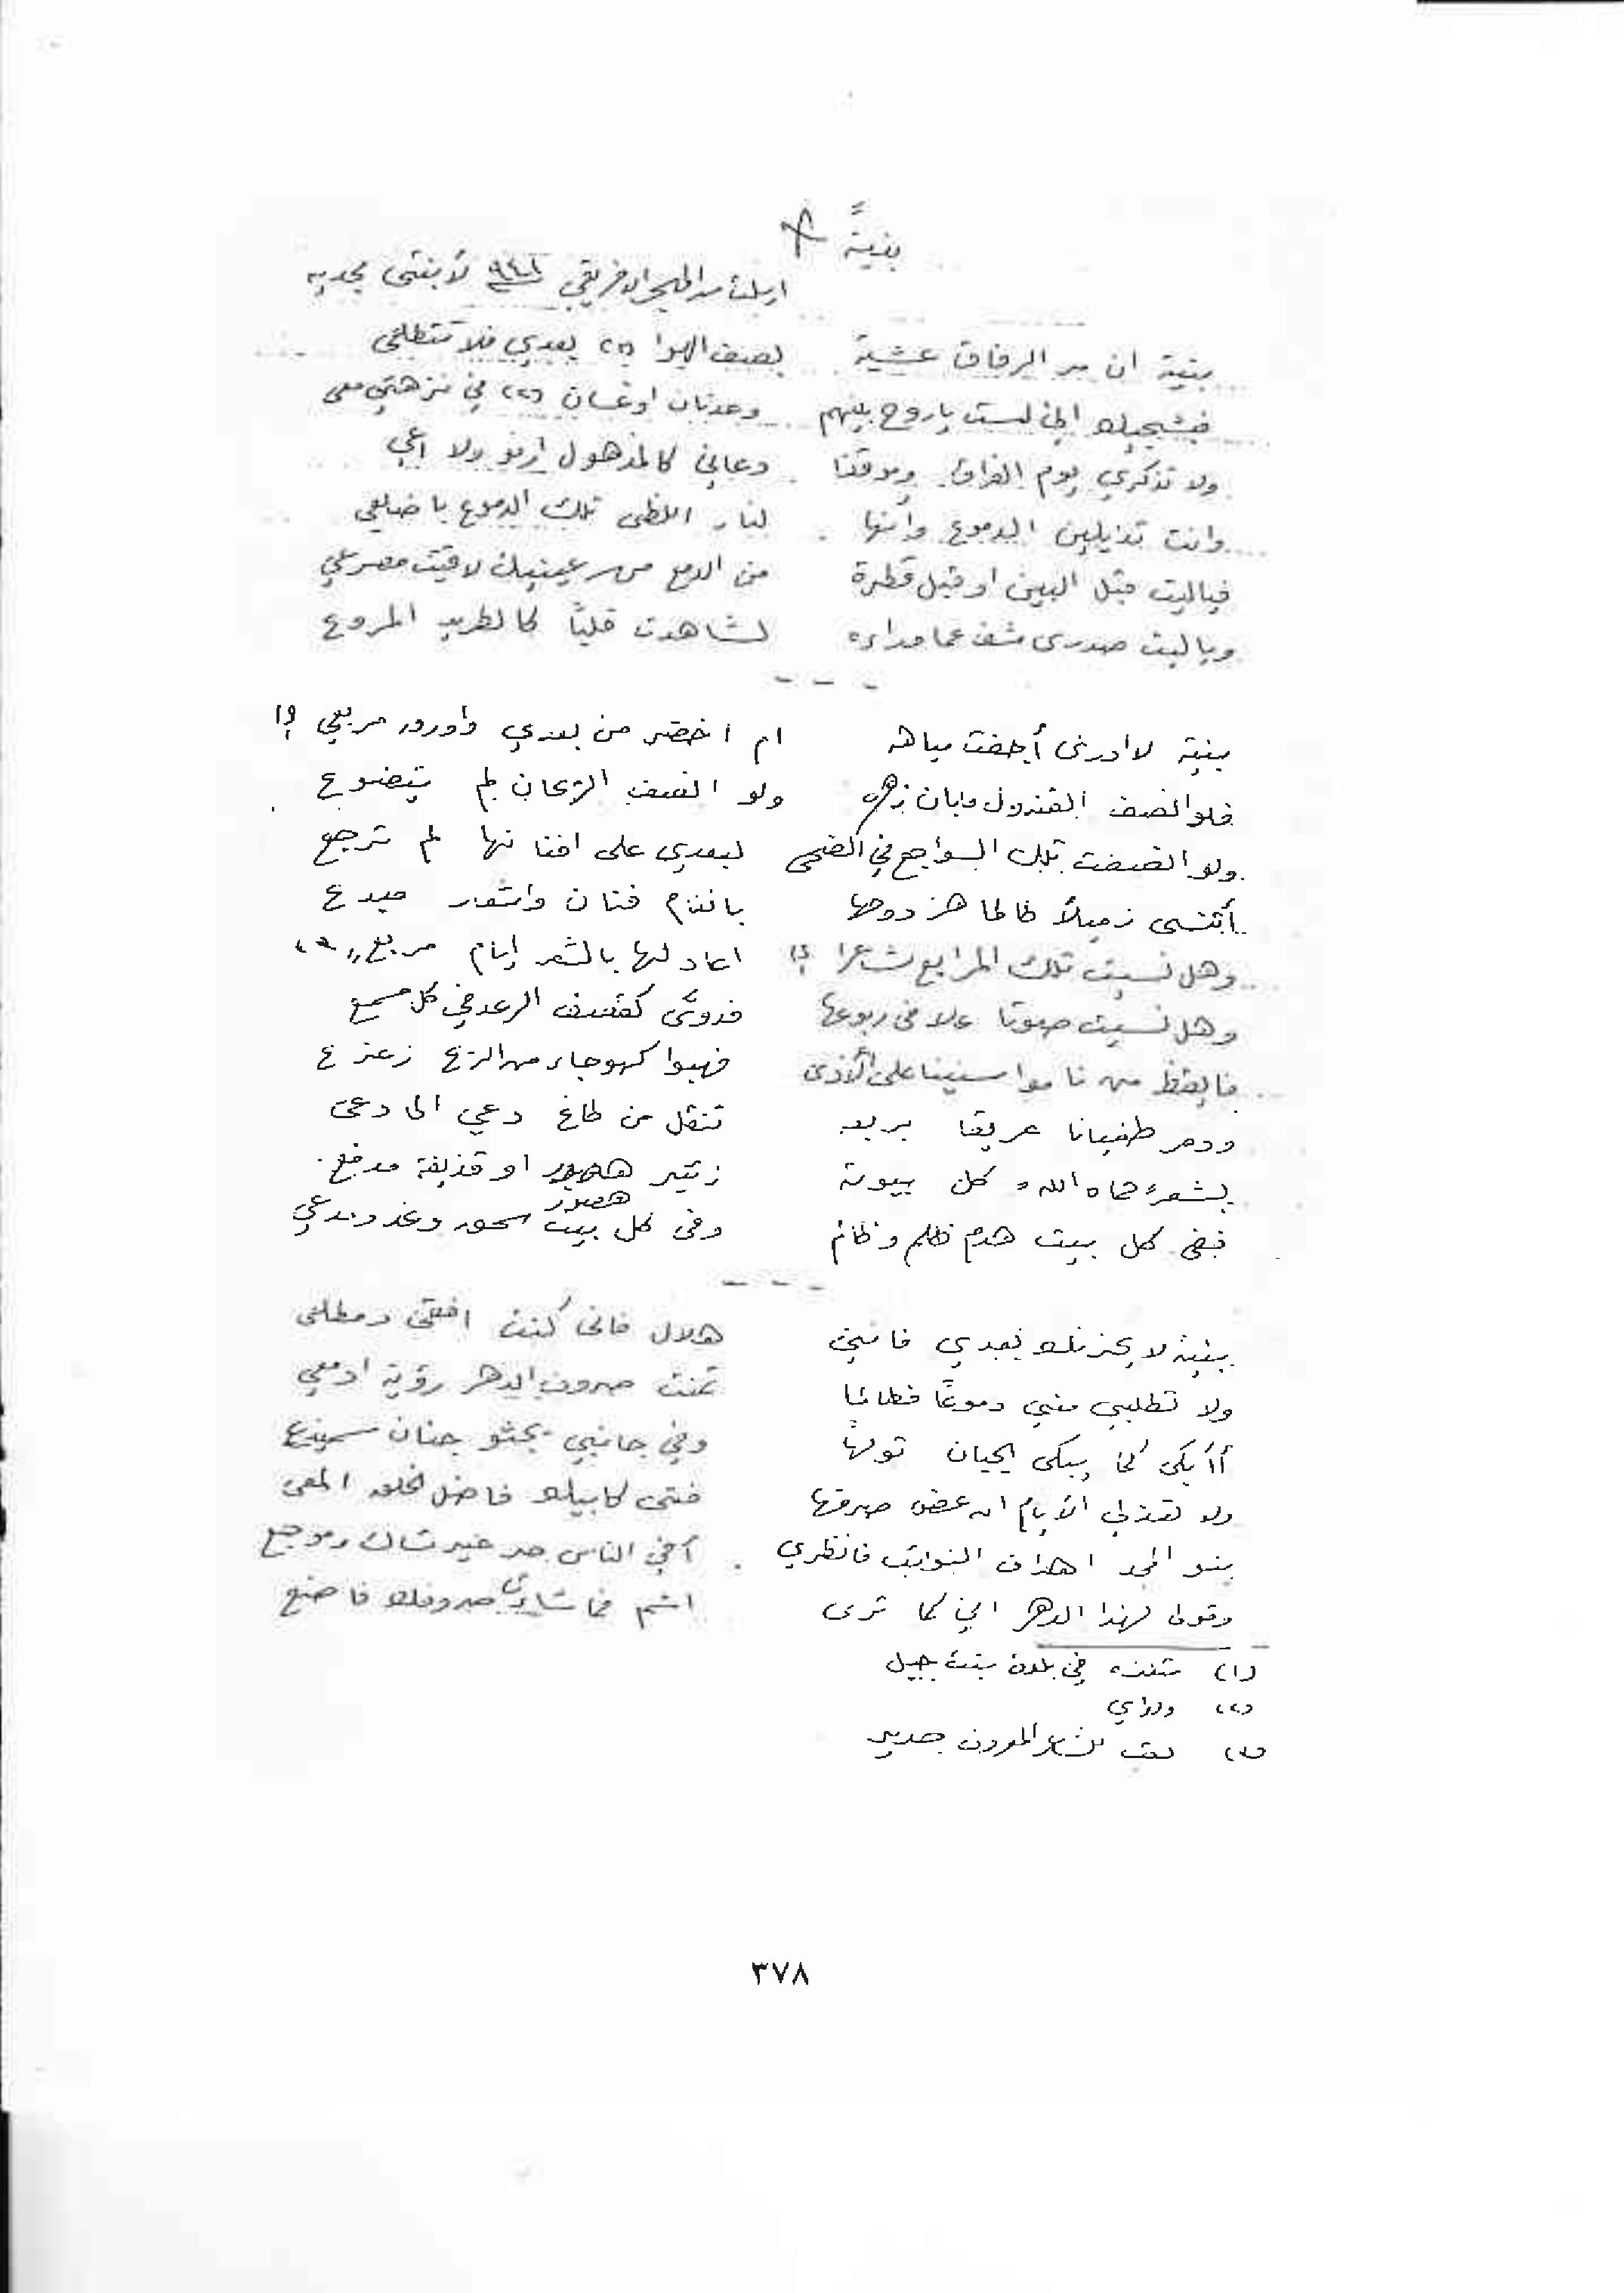 بنيةً
ارسلت من المهجر الافريقي لأبنتي
بنية ان مر الرفاق عشية بصف الهوا (١) بعدي فلا تتطلعي
فيشجيك اني لست يا روح بينهم وعدنان او غسان (٢) في نزهتي معي
ولا تذكري يوم الفراق وموقفا دعاني كالمذهول ارنو ولا اعي
وانت تذيلين الدموع وأنها لنار اللظى تلك الدموع باضلعي
فياليت قبل البين او قبل قطرة من الدمع من عينيك لاقيت مصرعي
وياليت صدري شف عما وراءه لشاهدت قلباً كالطريد المروع
- - -
بنية لا ادري أجفت مياهه ام اخضر من بعدي واورد مربعي ؟!
فلو انصف القندول ما بان زهره ولو انصف الريحان لم يتضوع
ولو انصفت تلك السواجع في الضحى لبعدي على افنانها لم ترجع
أتنسى زميلاً طالما هز دوحها بانغام فنان واشعار مبدع
وهل نسيت تلك المرابع شاعرا ؟! اعاد لها بالشعر إيام مربع (٣)
وهل نسيت صوتا علا في ربوعها فدوّى كقصف الرعد في كل مسمع
فايقظ من ناموا سنينا على الأذى فهبوا كهوجاء من الريح زعزع
ودمر طغيانا عريقا تنقل من طاغ دعي الى دعي
بشعر حماه الله كل بيوته زئير هصور او قذيفة مدفع
هصور
ففي كل بيت هدم ظلم وظالم وفي كل بيت سحق وغد ومدعي
- - -
بنية لا يحزنك بعدي فانني هلال فانى كنت افقي ومطلعي
ولا تطلبي مني دموعًا فطالما تمنت صروف الدهر رؤية ادمعي
أأبكي كما يبكي الجبان تولهاً وفي جانبي يجثو جنان سميذع
ولا تعذلي الأيام ان عض صرفها فتى كابيك فاضل الخلق المعي
بنو المجد اهداف النوائب فانظري أفي الناس حر غير شاك وموجع
وقولي لهذا الدهر اني كما ترى اشم فما شاءت صروفك فاصنع
(١) متنزه في بلدة بنت جبيل
(٢) ولداي
(٣) لقب للشاعر المعروف جرير
٣٧٨